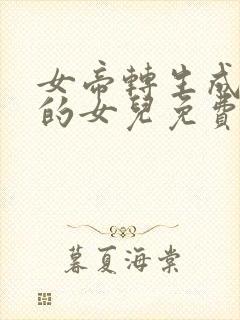 女帝轉生成
的女兒免費
暮夏海棠